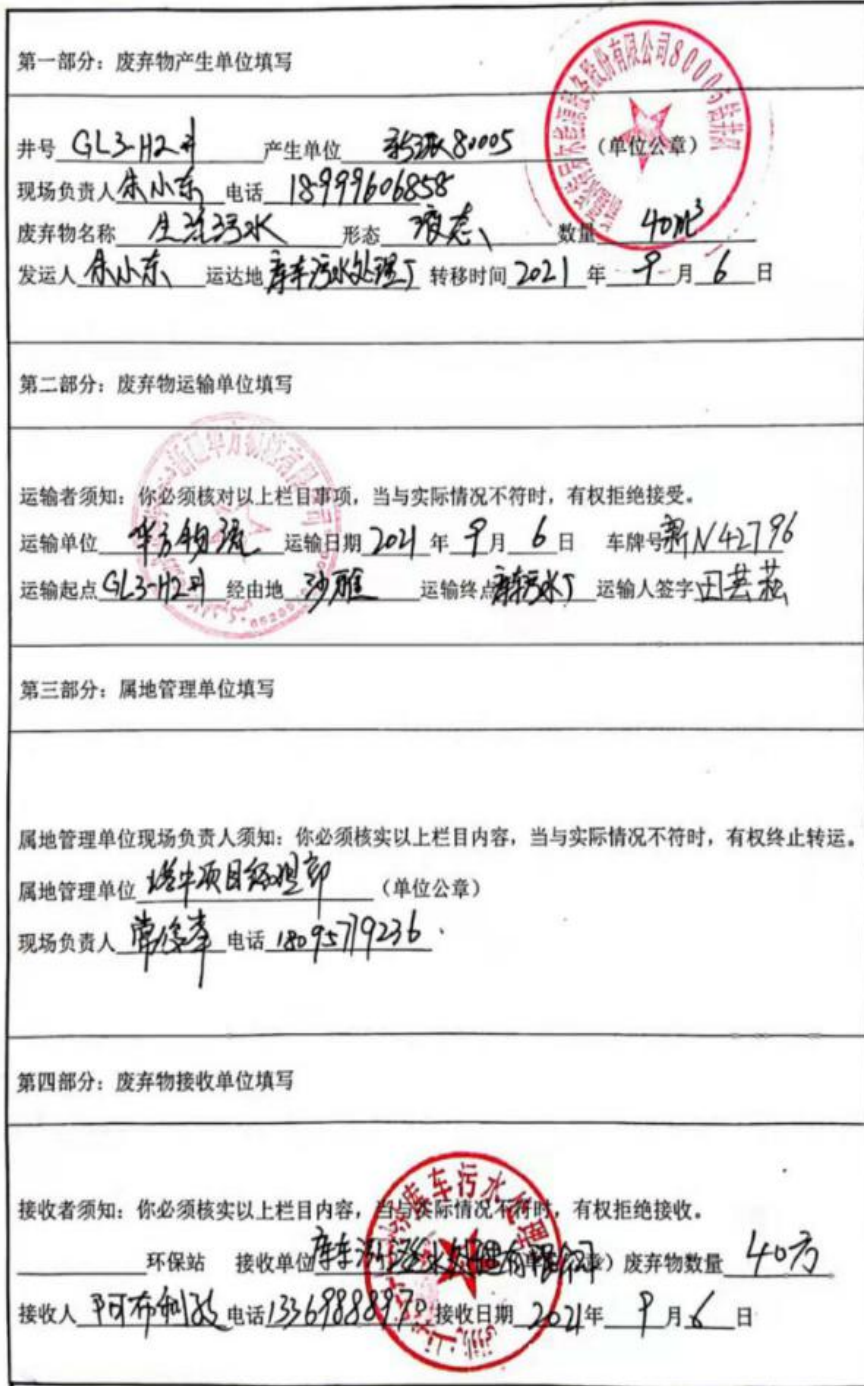 第一部分：废弃物产生单位填写
股份有限公司80005钻井队
井号 GL3-H2井 产生单位 80005 （单位公章）
现场负责人 朱小东 电话 18999606858
废弃物名称 生活污水 形态 液态 数量 40m³
发运人 朱小东 运达地 库车污水处理厂 转移时间 2021 年 9 月 6 日
第二部分：废弃物运输单位填写
运输者须知：你必须核对以上栏目事项，当与实际情况不符时，有权拒绝接受。
运输单位 华方物流 运输日期 2021 年 9 月 6 日 车牌号 新N42796
运输起点 GL3-H2井 经由地 沙雅 运输终点 库车污水厂 运输人签字 田芸菘
第三部分：属地管理单位填写
属地管理单位现场负责人须知：你必须核实以上栏目内容，当与实际情况不符时，有权终止转运。
属地管理单位 塔中项目经理部 （单位公章）
现场负责人 常俊峰 电话 18095779236
第四部分：废弃物接收单位填写
库车污水处理
接收者须知：你必须核实以上栏目内容，当与实际情况不符时，有权拒绝接收。
环保站 接收单位 库车 污水处理有限公司 章）废弃物数量 40方
接收人 阿布利孜 电话 13369888970 接收日期 2021年 9 月 6 日